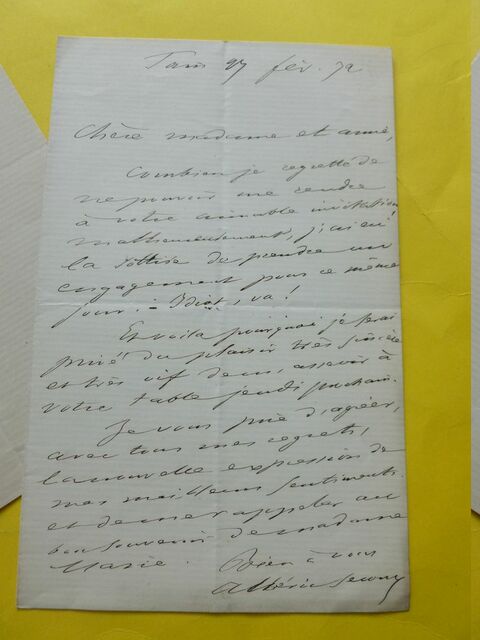 Paris 27 fév. 72
Chère madame et amie,
Combien je regrette de
ne pouvoir me rendre
à votre aimable invitation
malheureusement, j'ai eu
la sottise de prendre un
engagement pour ce même
jour. - Idiot, va!
Et voilà pourquoi je serai
privé du plaisir très sincère
et très vif de m'asseoir à
votre table jeudi prochain.
Je vous prie d'agréer,
avec tous mes regrets,
la nouvelle expression de
mes meilleurs sentiments
et de me rappeler au
bon souvenir de madame
Marie. Bien à vous
Albéric Second